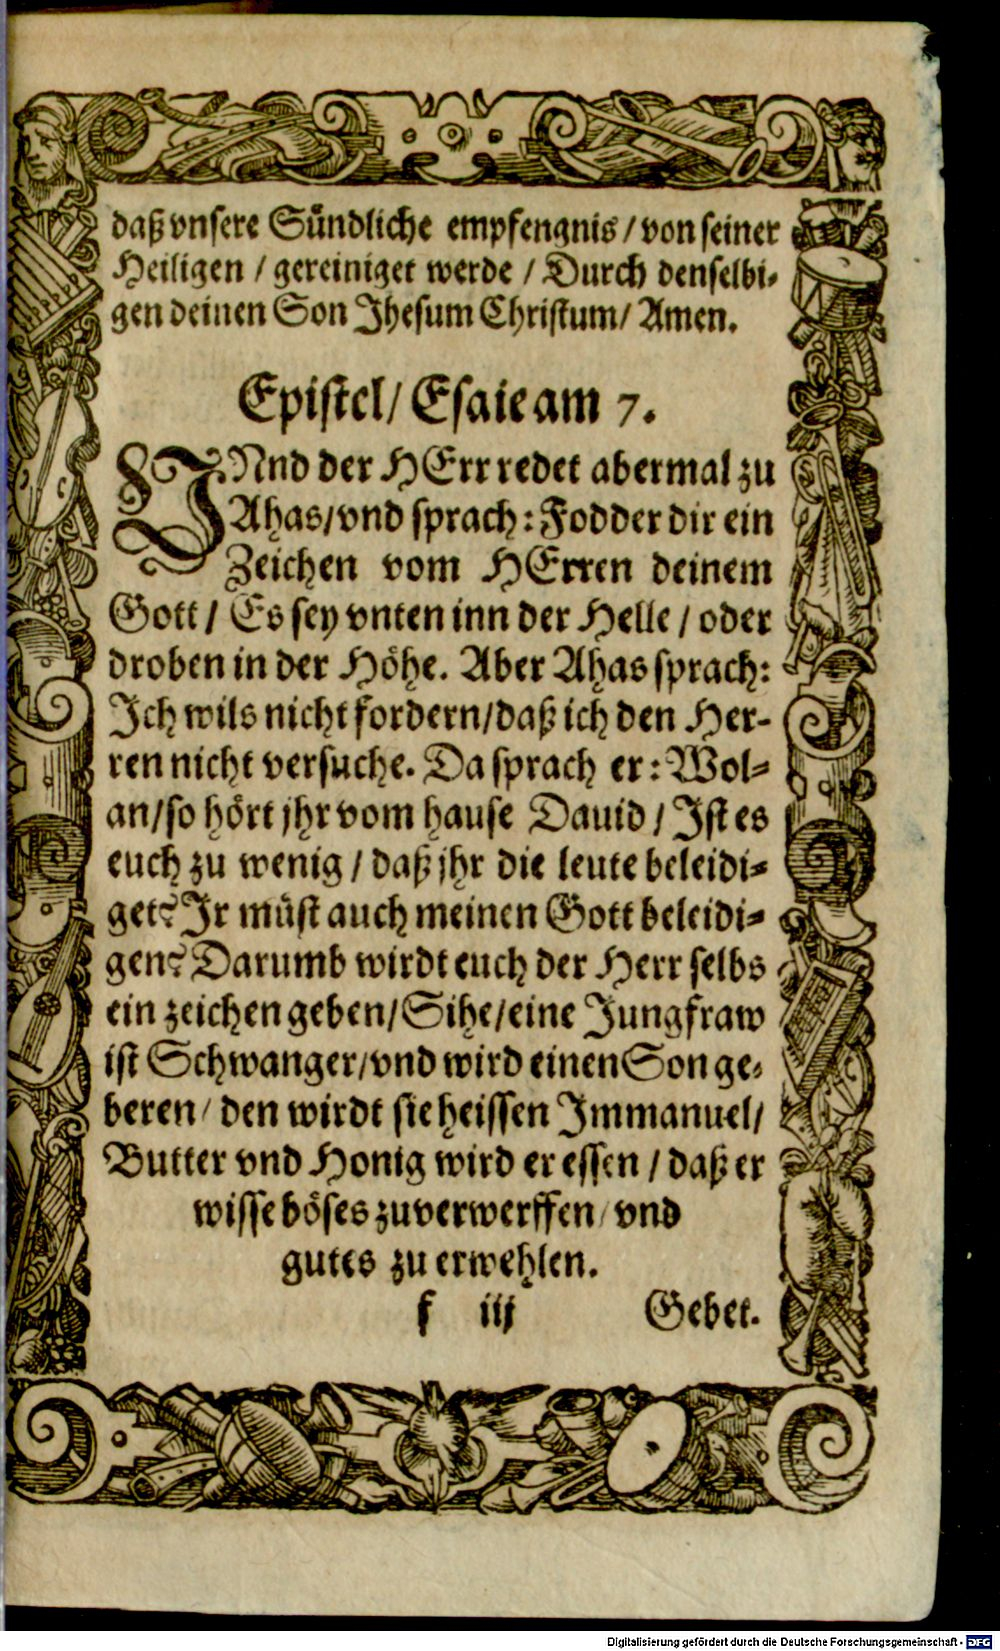 daß vnsere Sündliche empfengnis / von seiner
Heiligen / gereiniget werde / Durch denselbi-
gen deinen Son Jhesum Christum / Amen.
Epistel / Esaie am 7.
VNnd der HErr redet abermal zu
Ahas / vnd sprach : Fodder dir ein
Zeichen vom HErren deinem
Gott / Es sey vnten inn der Helle / oder
droben in der Höhe. Aber Ahas sprach:
Ich wils nicht fordern / daß ich den Her-
ren nicht versuche. Da sprach er : Wol-
an / so hört jhr vom hause Dauid / Ist es
euch zu wenig / daß jhr die leute beleidi-
get? Ir müst auch meinen Gott beleidi-
gen? Darumb wirdt euch der Herr selbs
ein zeichen geben / Sihe / eine Jungfraw
ist Schwanger / vnd wird einen Son ge-
beren / den wirdt sie heissen Immanuel /
Butter vnd Honig wird er essen / daß er
wisse böses zuverwerffen / vnd
gutes zu erwehlen.
f iij Gebet.
Digitalisierung gefördert durch die Deutsche Forschungsgemeinschaft - DFG